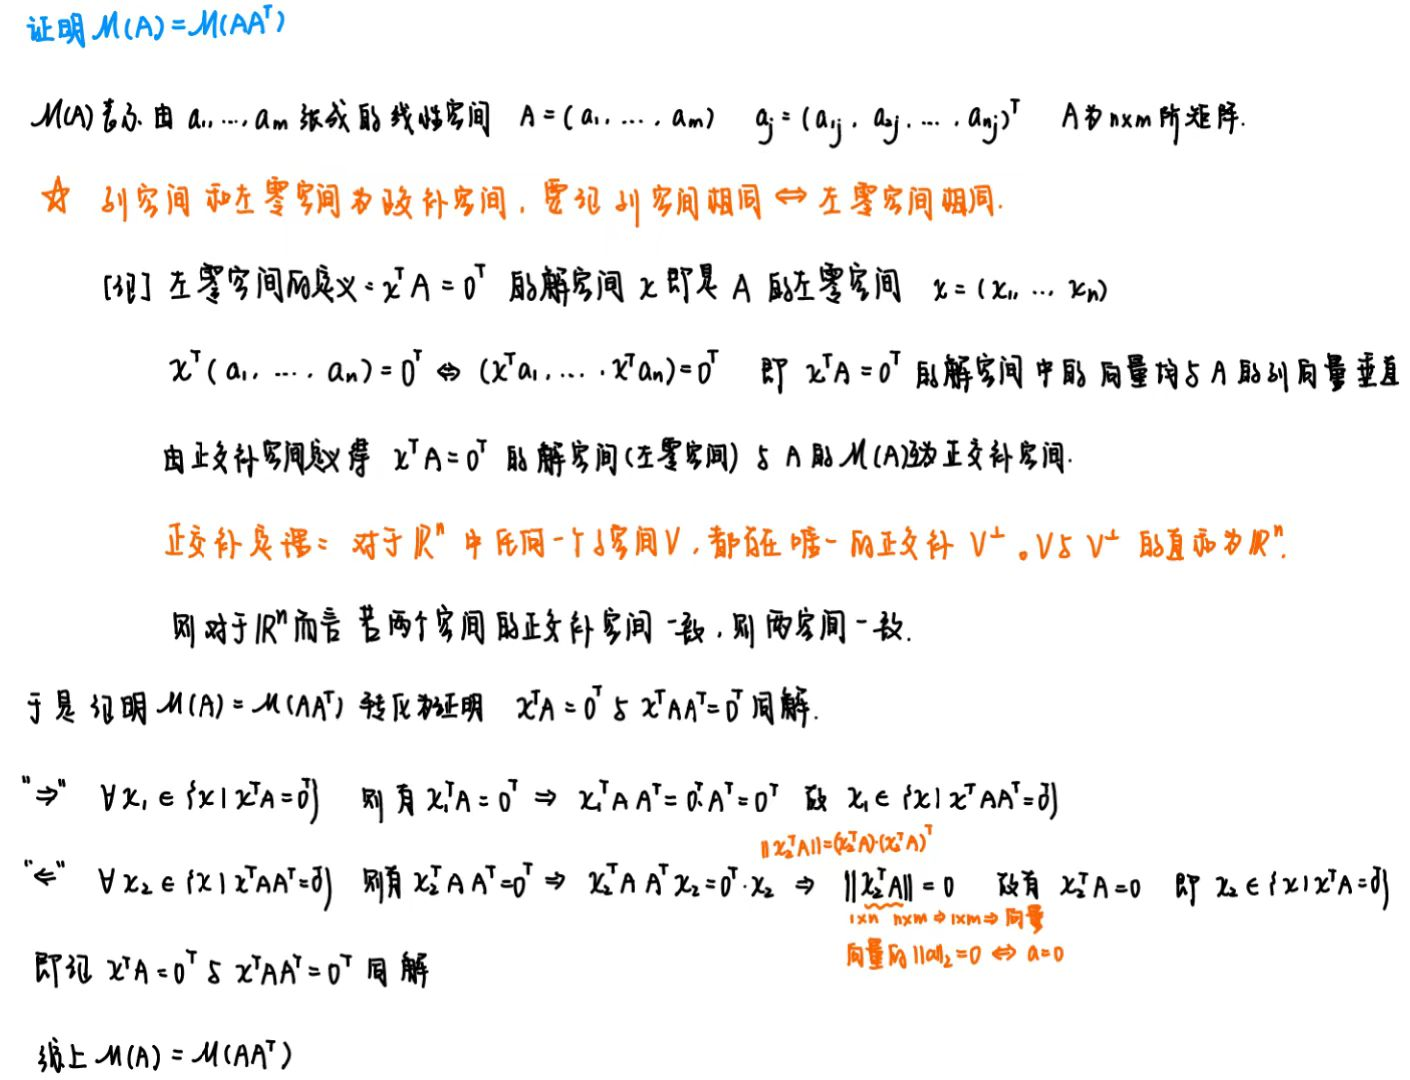 证明 M(A)=M(AAᵀ)
M(A)表示由 a₁, ..., aₘ 张成的线性空间 A=(a₁, ..., aₘ) aⱼ=(a₁ⱼ, a₂ⱼ, ..., aₙⱼ)ᵀ A为n×m阶矩阵.
☆ 列空间和左零空间为正交补空间, 要证列空间相同 ⇔ 左零空间相同.
[证] 左零空间的定义: xᵀA=0ᵀ 的解空间 x 即是 A 的左零空间 x=(x₁, ... xₙ)
xᵀ(a₁, ..., aₙ)=0ᵀ ⇔ (xᵀa₁, ..., xᵀaₙ)=0ᵀ 即 xᵀA=0ᵀ 的解空间中的向量均与A的列向量垂直
由正交补空间定义得 xᵀA=0ᵀ 的解空间(左零空间)与A的M(A)互为正交补空间.
正交补定理: 对于ℝⁿ中任何一个子空间V, 都存在唯一的正交补 V⊥。V与V⊥的直和为ℝⁿ.
则对于ℝⁿ而言 若两个空间的正交补空间一致, 则两空间一致.
于是证明 M(A)=M(AAᵀ) 转化为证明 xᵀA=0ᵀ 与 xᵀAAᵀ=0ᵀ 同解.
"⇒" ∀x₁∈{x|xᵀA=0ᵀ} 则有 x₁ᵀA=0ᵀ ⇒ x₁ᵀAAᵀ=0ᵀ·Aᵀ=0ᵀ 故 x₁∈{x|xᵀAAᵀ=0ᵀ}
||x₂ᵀA||=(x₂ᵀA)·(x₂ᵀA)ᵀ
"⇐" ∀x₂∈{x|xᵀAAᵀ=0ᵀ} 则有 x₂ᵀAAᵀ=0ᵀ ⇒ x₂ᵀAAᵀx₂=0ᵀ·x₂ ⇒ ||x₂ᵀA||=0 故有 x₂ᵀA=0 即 x₂∈{x|xᵀA=0ᵀ}
1×n n×m ⇒ 1×m ⇒ 向量
向量的||a||₂=0 ⇔ a=0
即证 xᵀA=0ᵀ 与 xᵀAAᵀ=0ᵀ 同解
综上 M(A)=M(AAᵀ)